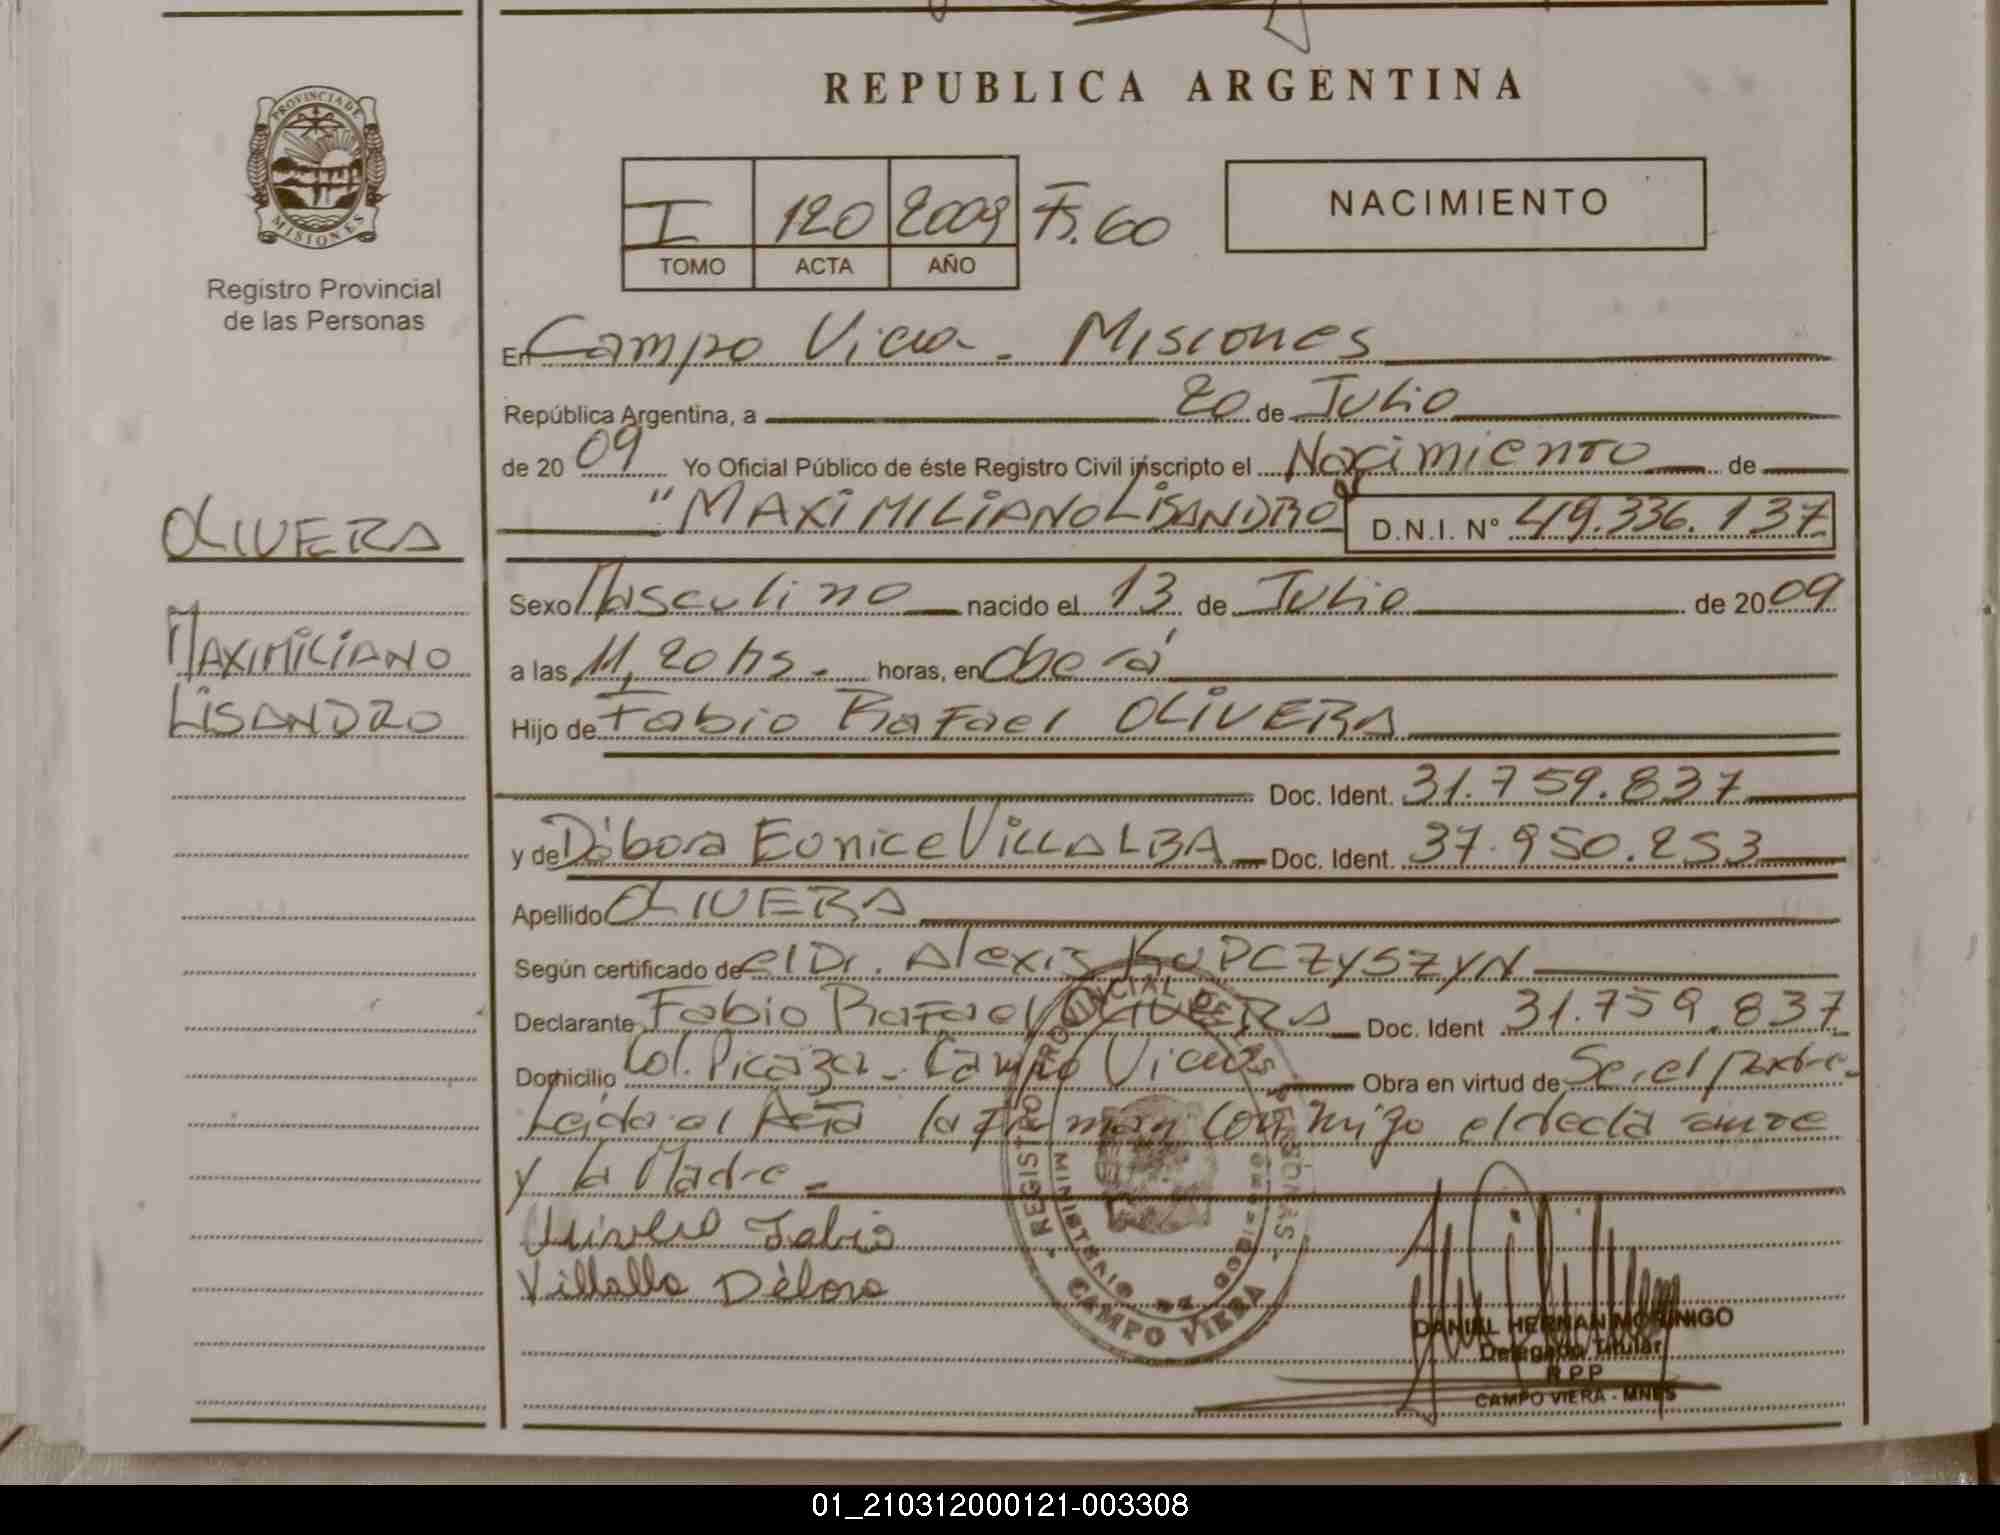 REPUBLICA ARGENTINA
PROVINCIA DE
MISIONES
Registro Provincial
de las Personas
I 120 2009 Fs. 60
TOMO ACTA AÑO
NACIMIENTO
En Campo Viera - Misiones
República Argentina, a 20 de Julio
de 20 09 Yo Oficial Público de éste Registro Civil inscripto el Nacimiento de
"MAXIMILIANO LISANDRO" D.N.I. N° 49.336.137
OLIVERA
MAXIMILIANO
LISANDRO
Sexo Masculino nacido el 13 de Julio de 20 09
a las 11,20 hs. horas, en Oberá
Hijo de Fabio Rafael OLIVERA
Doc. Ident. 31.759.837
y de Débora Eunice VILLALBA Doc. Ident. 37.950.253
Apellido OLIVERA
Según certificado de el Dr. Alexis KUPCZYSZYN
Declarante Fabio Rafael OLIVERA Doc. Ident 31.759.837
Domicilio Col. Picaza - Campo Viera Obra en virtud de Ser el padre -
Leída el Acta la firman conmigo el declarante
y la Madre -
Olivera Fabio
Villalba Débora
REGISTRO PROVINCIAL DE LAS PERSONAS
MINISTERIO DE GOBIERNO
CAMPO VIERA
DANIEL HERNAN MORINIGO
Delegado Titular
R.P.P
CAMPO VIERA - MNES
01_210312000121-003308